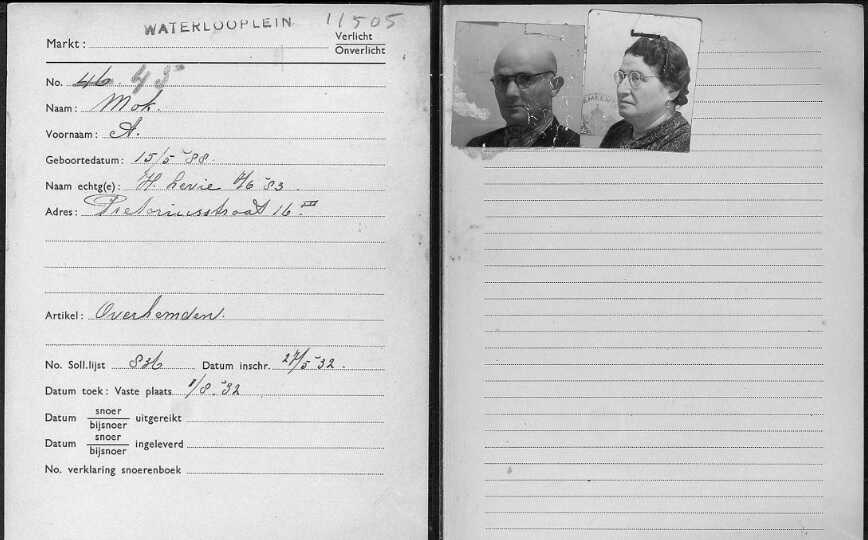 WATERLOOPLEIN 11505
Markt: Verlicht
Onverlicht
No. 46. 45
Naam: Mok.
Voornaam: A.
Geboortedatum: 15/5 - 88.
Naam echtg(e): H. Levie /6 - 83
Adres: Pretoriusstraat 16 III
Artikel: Overhemden.
No. Soll.lijst 836 Datum inschr. 27/5 - 32.
Datum toek: Vaste plaats 1/8. - 32
Datum snoer
bijsnoer uitgereikt
Datum snoer
bijsnoer ingeleverd
No. verklaring snoerenboek